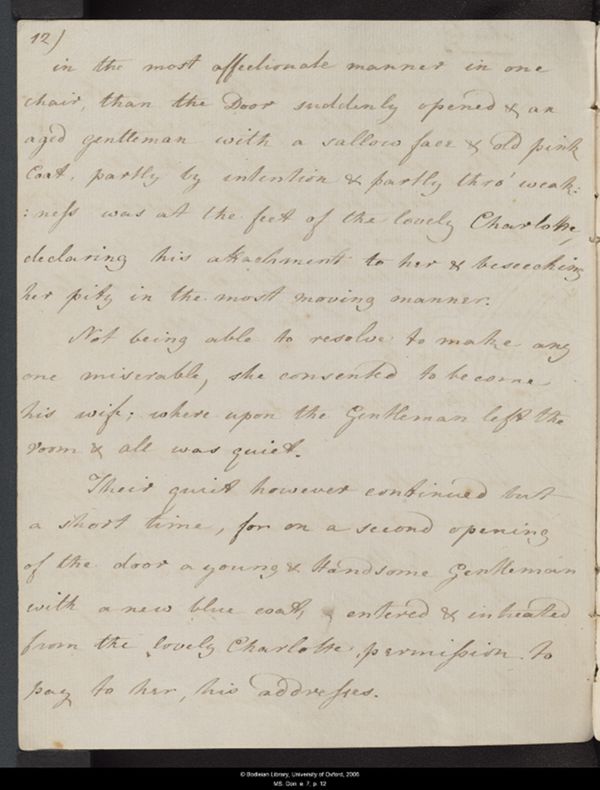 12)
in the most affectionate manner in one
chair, than the Door suddenly opened & an
aged gentleman with a sallow face & old pink
Coat, partly by intention & partly thro' weak:
:neſs was at the feet of the lovely Charlotte,
declaring his attachment to her & beseeching
her pity in the most moving manner.
Not being able to resolve to make any
one miserable, she consented to become
his wife; where upon the Gentleman left the
room & all was quiet.
Their quiet however continued but
a short time, for on a second opening
of the door a young & Handsome Gentleman
with a new blue coat, entered & intreated
from the lovely Charlotte, permiſsion to
pay to her, his addreſses.
© Bodleian Library, University of Oxford, 2006
MS. Don. e. 7, p. 12